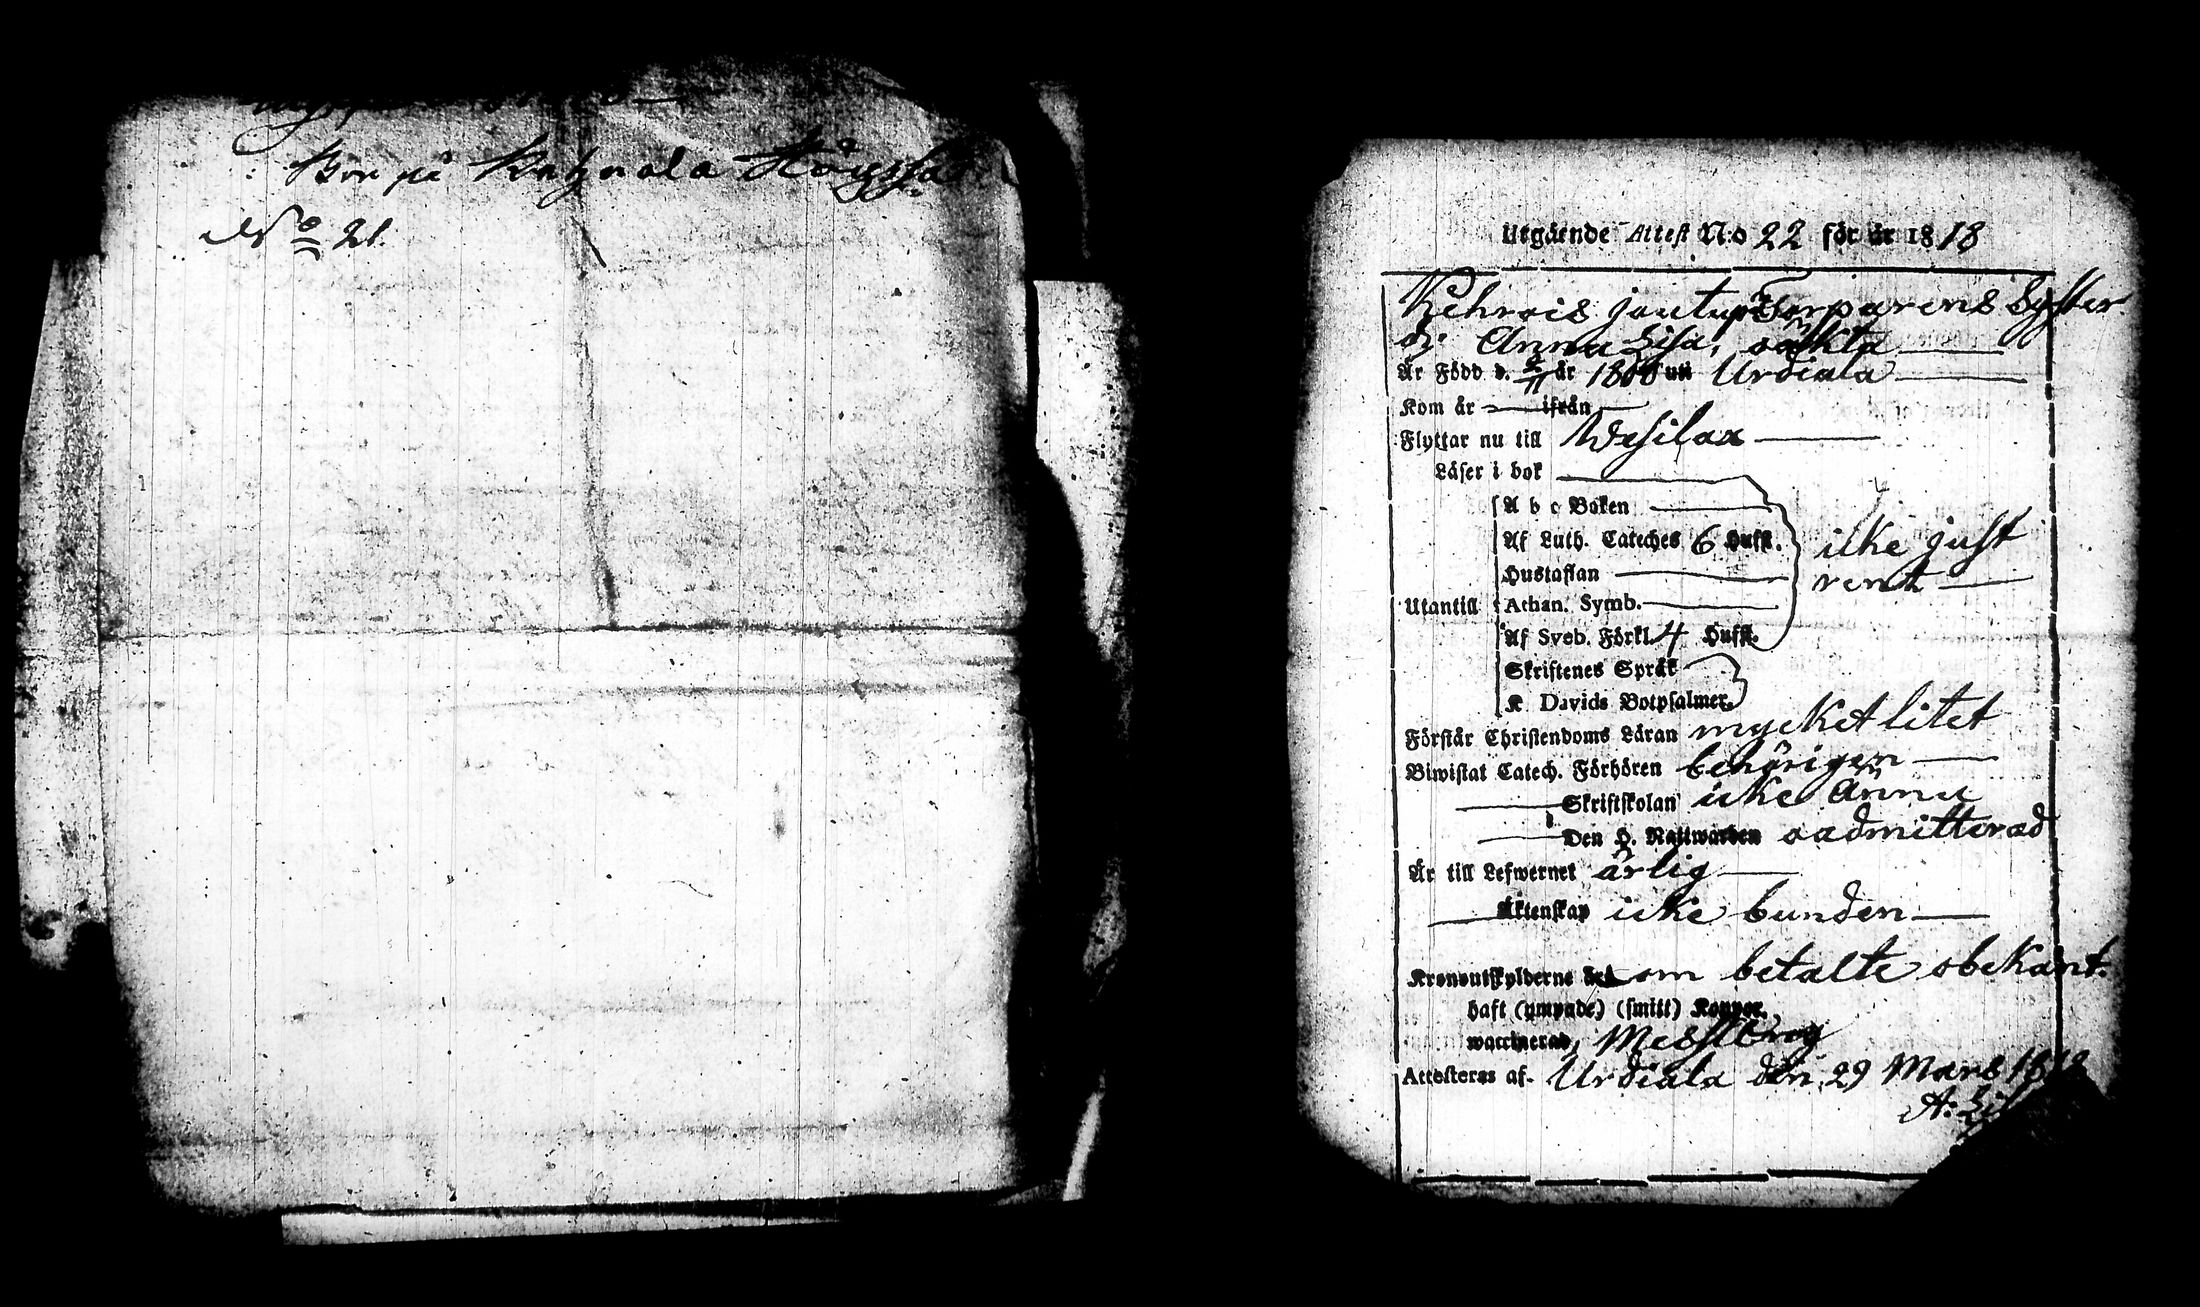 Bor på
No 21.
Utgående Attest N:o 22 för år 1818
Torparens Syster
Anna Lisa, oäkta
Är Född d. 2/11 år 1800 uti Urdiala
Kom år ifrån
Flyttar nu till Wesilax
Läser i bok
A b c Boken
Af Luth. Cateches 6 Hufst. icke just
Hustaflan rent
Utantill Athan. Symb.
Af Sveb. Förkl. 4 Hufst.
Skriftenes Språk
K. Davids Botpsalmer.
Förstår Christendoms Läran mycket litet
Biwistat Catech. Förhören behörigen
Skriftskolan icke ännu
Den H. Nattwarden oadmitterad
Är till Lefwernet ärlig
Äktenskap icke bunden
Kronoutskylderne om betalte obekant.
haft (ympade) (smitt) Koppor.
waccinerad,
Attesteras af. Urdiala den 29 Mars 1818